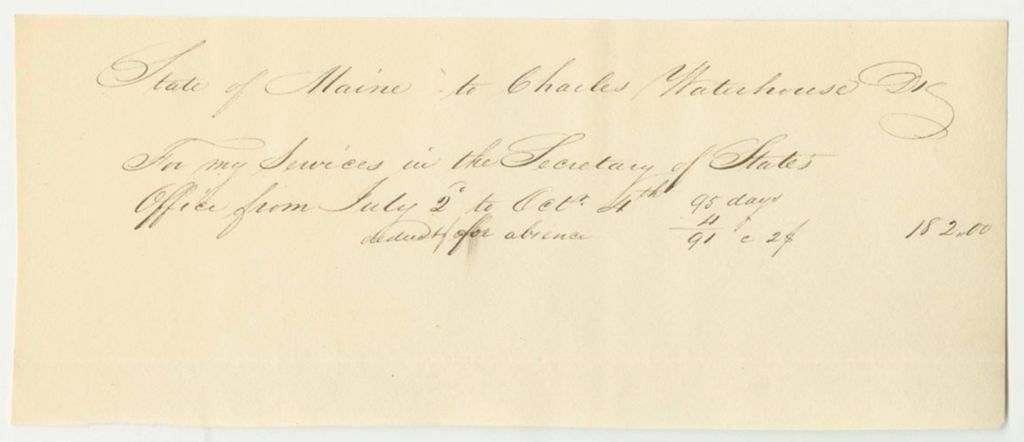 State of Maine to Charles Waterhouse Dr
For my Services in the Secretary of State's
Office from July 2d to Octr 4th 95 days
deduct for absence 4
91 c 2$ 182.00